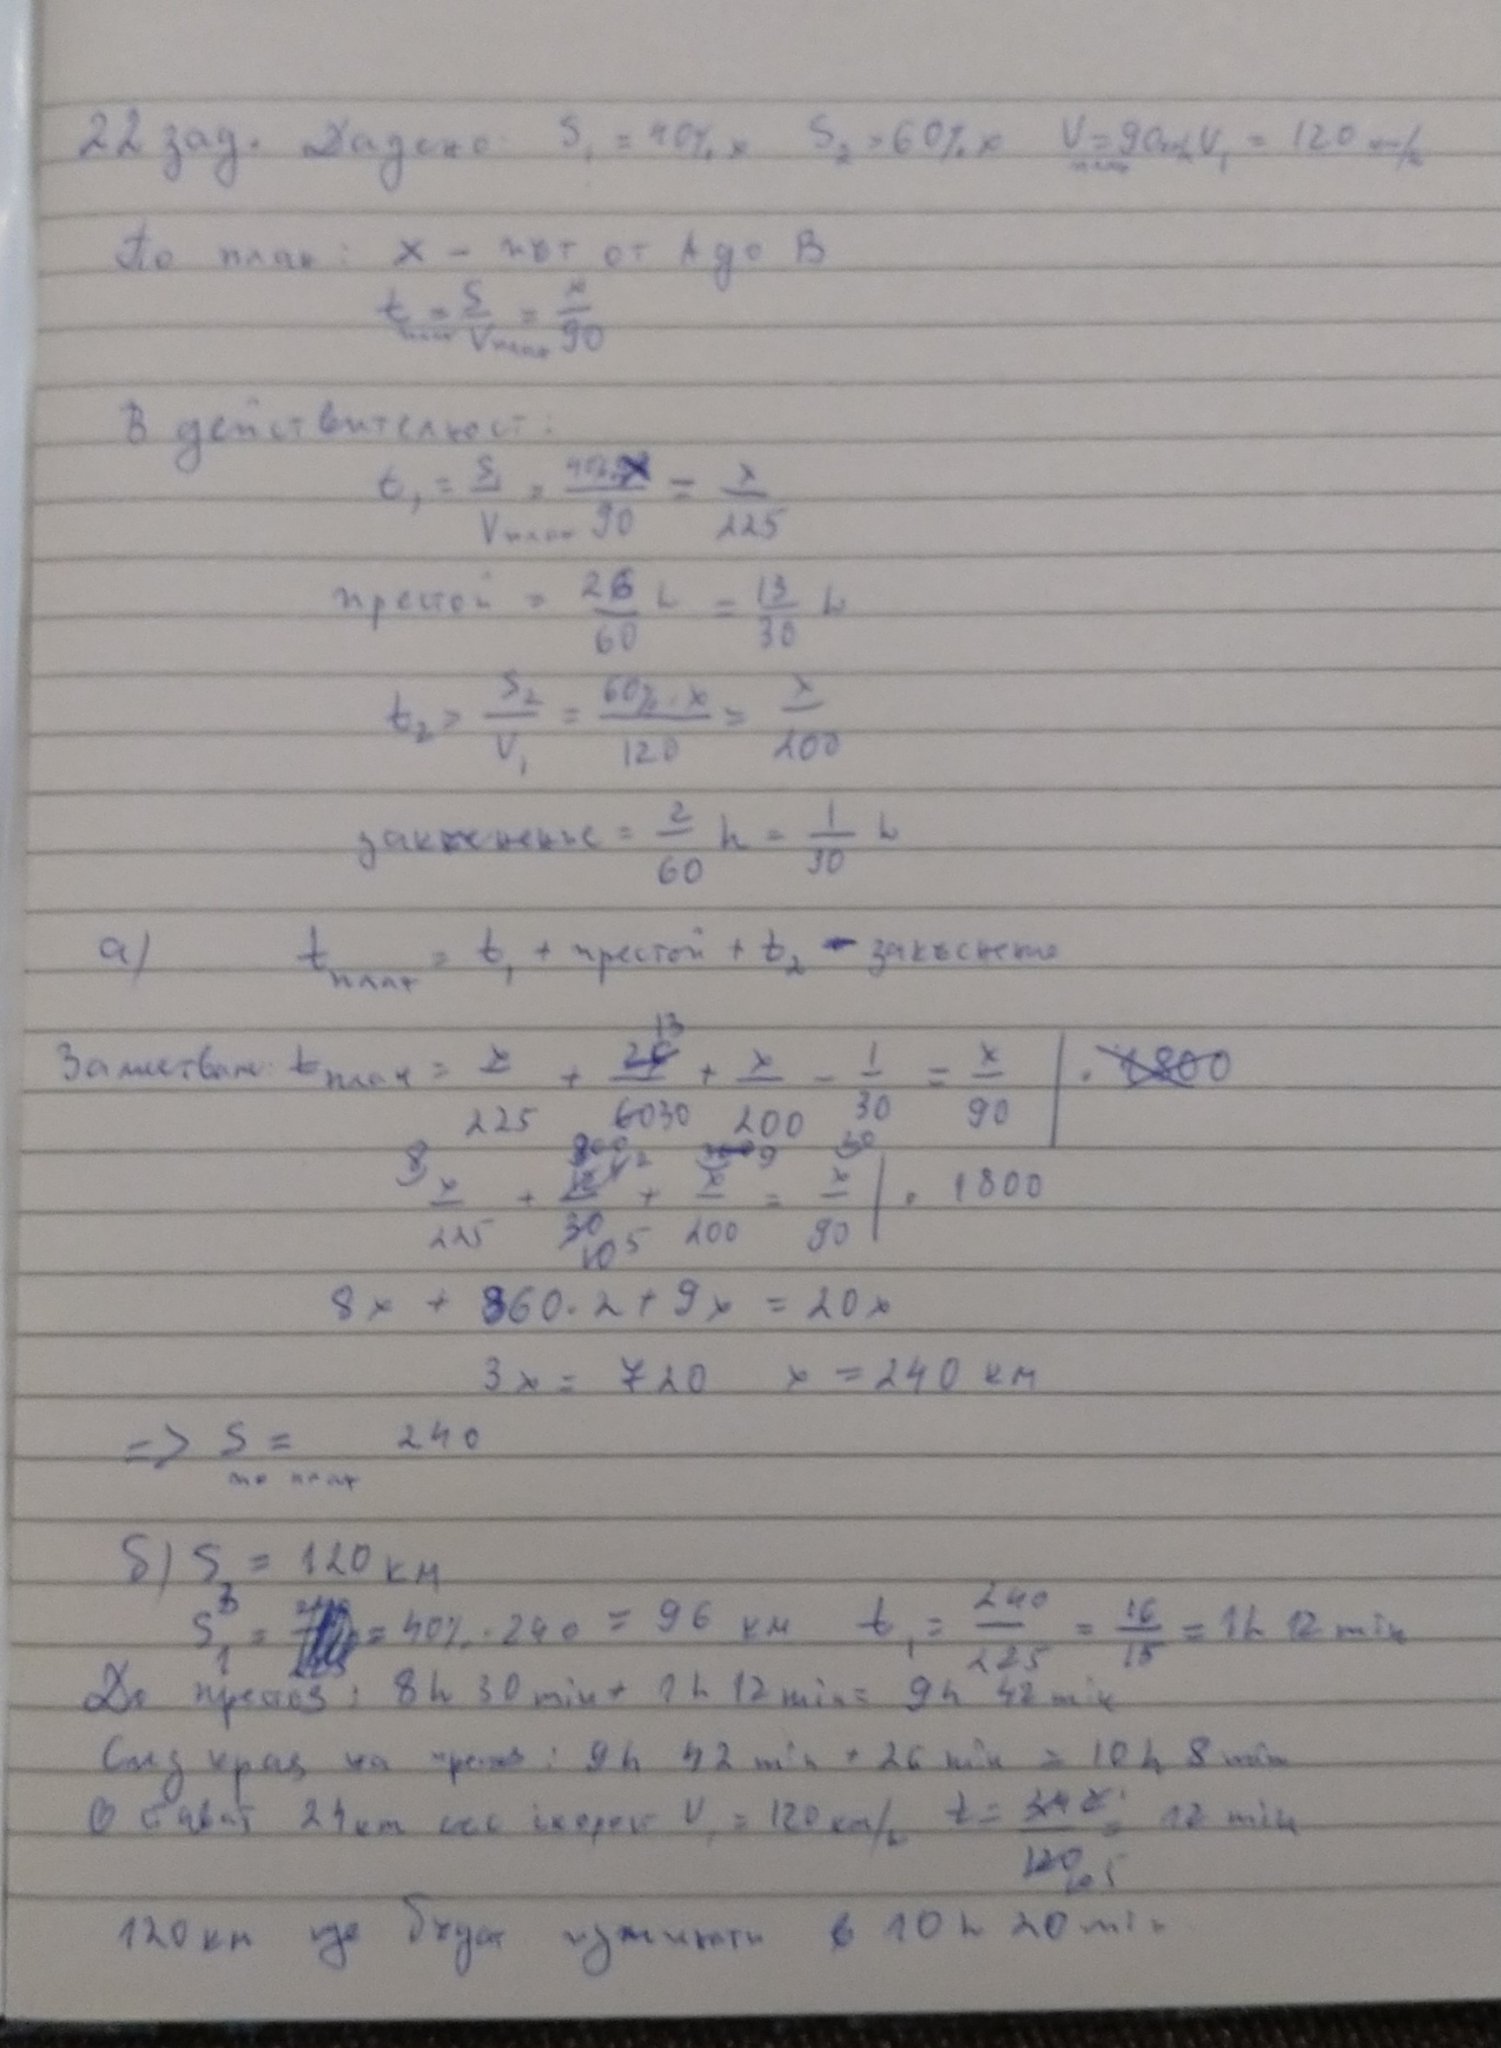 22 зад. Дадено: S₁ = 40% x S₂ = 60% x V план = 90 km/h V₁ = 120 km/h
По план: x – път от A до B
t план = S / V план = x / 90
В действителност:
t₁ = S₁ / V план = 40%.x / 90 = x / 225
престой = 26/60 h = 13/30 h
t₂ = S₂ / V₁ = 60%.x / 120 = x / 200
закъснение = 2/60 h = 1/30 h
а) t план = t₁ + престой + t₂ - закъснение
Заместваме: t план = x/225 + 13/30 + x/200 - 1/30 = x/90 | . 1800
x/225 + 12/30 + x/200 = x/90 | . 1800
8x + 360.2 + 9x = 20x
3x = 720 x = 240 км
=> S по план = 240
б) S₃ = 120 км
S₁ = 40%.240 = 96 км t₁ = 240/225 = 16/15 = 1h 12 min
До престоя: 8h 30 min + 1h 12 min = 9h 42 min
След края на престоя: 9h 42 min + 26 min = 10h 8 min
Остават 24 km със скорост V₁ = 120 km/h t = 24/120 = 12 min
120 км ще бъдат изминати в 10h 20 min